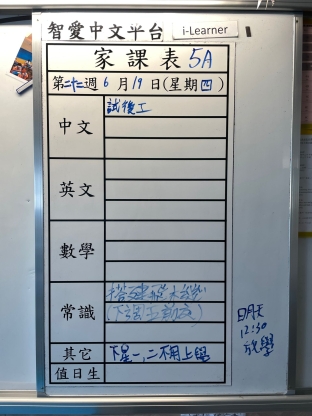 智愛中文平台 i-Learner
家課表 5A
第二十二週 6月19日(星期四)
中文 試後工
英文
數學
常識
(下周五前交)
其它 下星一,二不用上學
值日生
明天
12:30
放學